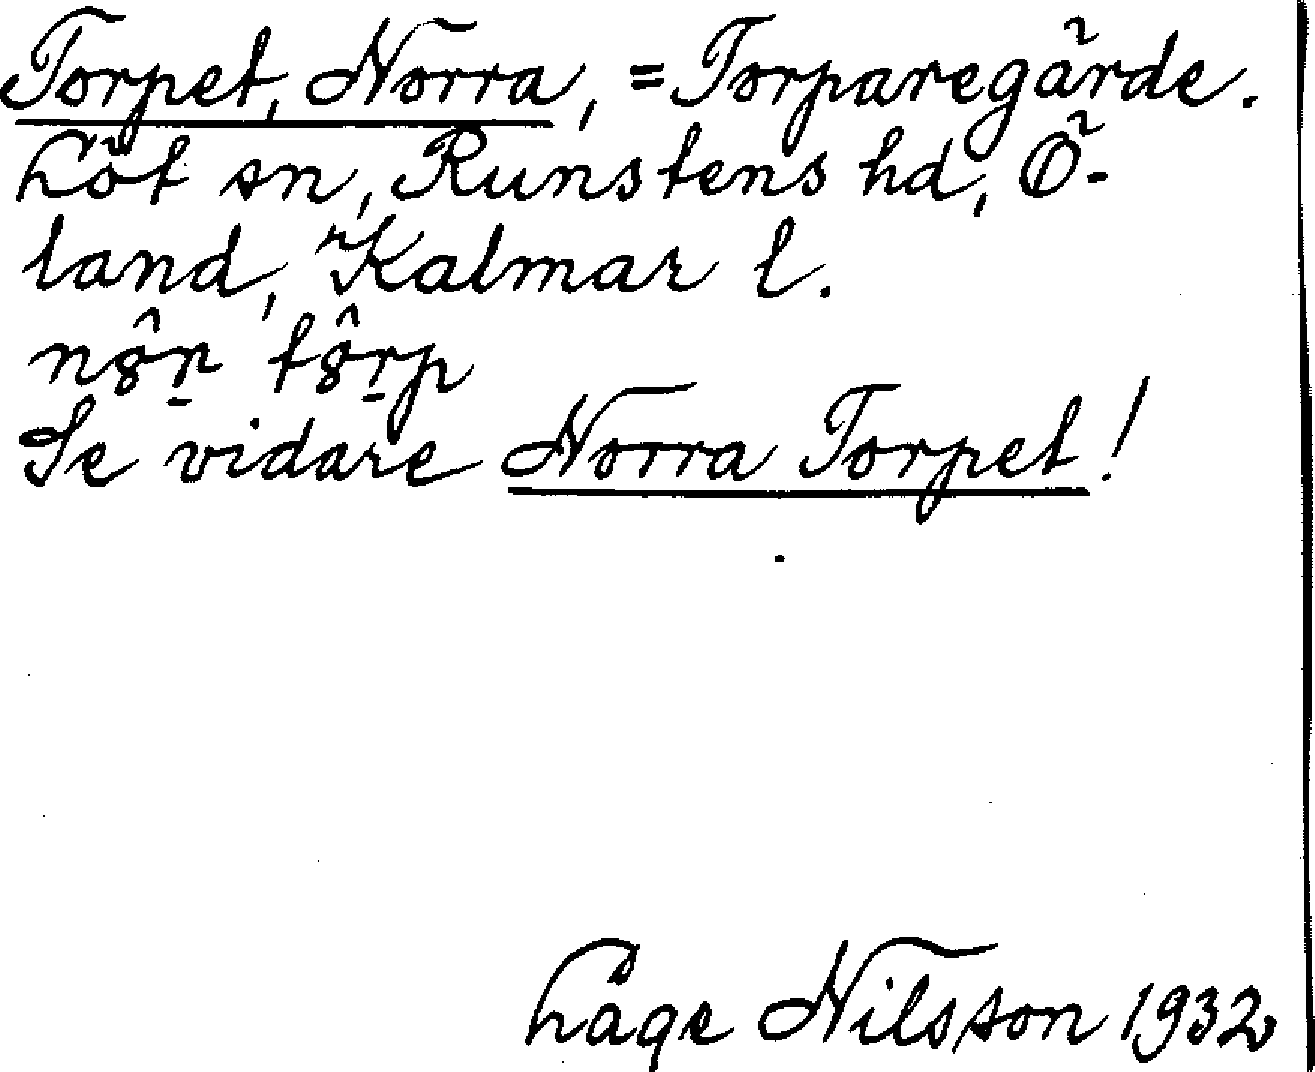 Torpet, Norra, = Torparegärde.
Löt sn, Runstens hd, Ö-
land, Kalmar l.
Se vidare Norra Torpet!
Låge Nilsson 1932